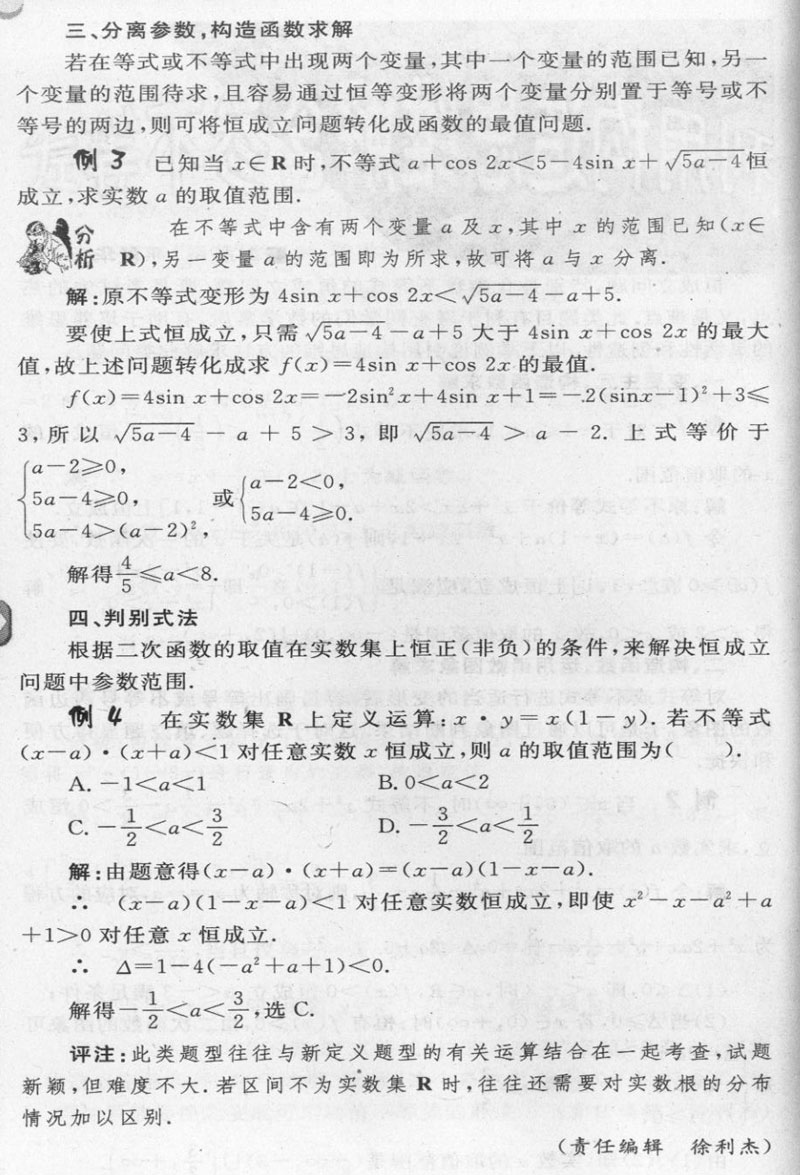 三、分离参数,构造函数求解
若在等式或不等式中出现两个变量,其中一个变量的范围已知,另一
个变量的范围待求,且容易通过恒等变形将两个变量分别置于等号或不
等号的两边,则可将恒成立问题转化成函数的最值问题.
例 3 已知当 x∈R 时,不等式 a+cos 2x<5-4sin x+√(5a-4)恒
成立,求实数 a 的取值范围.
分析 在不等式中含有两个变量 a 及 x,其中 x 的范围已知(x∈
R),另一变量 a 的范围即为所求,故可将 a 与 x 分离.
解:原不等式变形为 4sin x+cos 2x<√(5a-4)-a+5.
要使上式恒成立,只需 √(5a-4)-a+5 大于 4sin x+cos 2x 的最大
值,故上述问题转化成求 f(x)=4sin x+cos 2x 的最值.
f(x)=4sin x+cos 2x=-2sin²x+4sin x+1=-2(sinx-1)²+3≤
3,所以 √(5a-4) - a + 5 > 3, 即 √(5a-4) > a - 2. 上式等价于
{a-2≥0,
5a-4≥0, 或{a-2<0,
5a-4>(a-2)², 5a-4≥0.
解得4/5≤a<8.
四、判别式法
根据二次函数的取值在实数集上恒正(非负)的条件,来解决恒成立
问题中参数范围.
例 4 在实数集 R 上定义运算:x·y=x(1-y). 若不等式
(x-a)·(x+a)<1 对任意实数 x 恒成立,则 a 的取值范围为( ).
A. -1<a<1 B. 0<a<2
C. -1/2<a<3/2 D. -3/2<a<1/2
解:由题意得(x-a)·(x+a)=(x-a)(1-x-a).
∴ (x-a)(1-x-a)<1 对任意实数恒成立,即使 x²-x-a²+a
+1>0 对任意 x 恒成立.
∴ Δ=1-4(-a²+a+1)<0.
解得-1/2<a<3/2,选 C.
评注:此类题型往往与新定义题型的有关运算结合在一起考查,试题
新颖,但难度不大.若区间不为实数集 R 时,往往还需要对实数根的分布
情况加以区别.
(责任编辑 徐利杰)